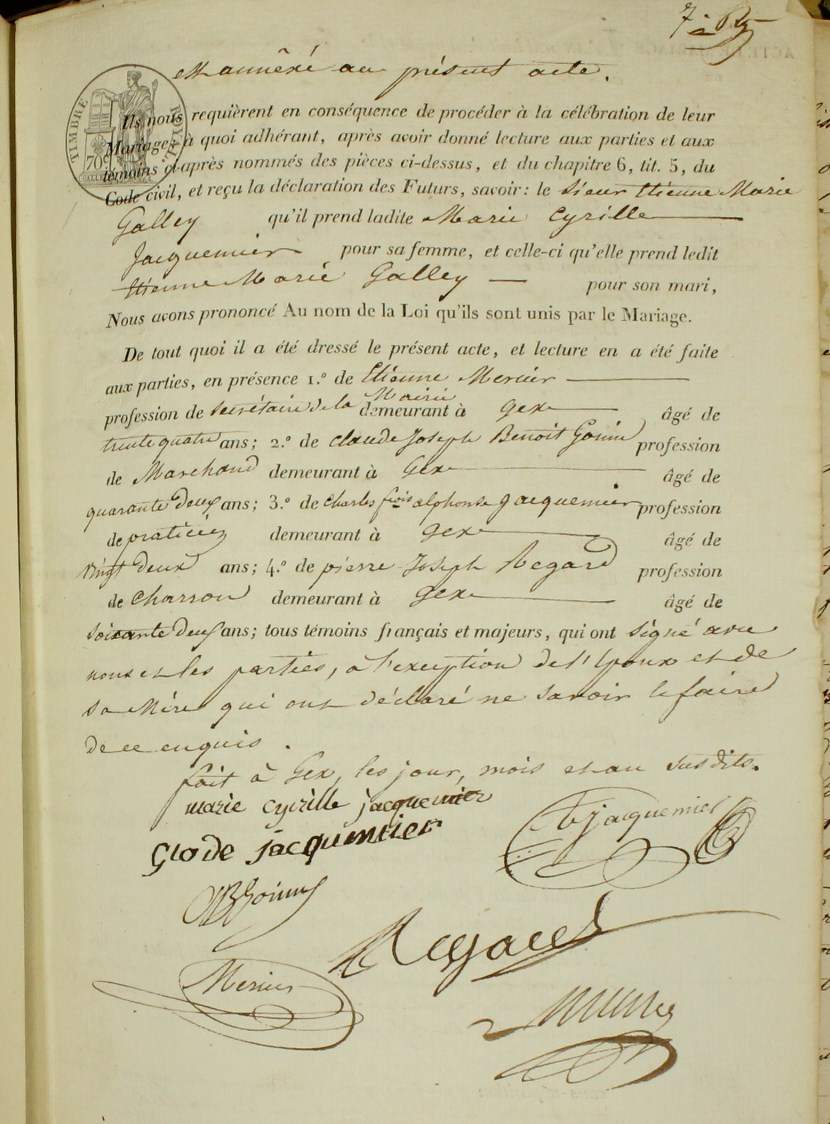 7
est annéxé au présent acte.
TIMBRE ROYAL
70
Ils nous requièrent en conséquence de procéder à la célébration de leur
Mariage; à quoi adhérant, après avoir donné lecture aux parties et aux
témoins ci-après nommés des pièces ci-dessus, et du chapitre 6, tit. 5, du
Code civil, et reçu la déclaration des Futurs, savoir: le Sieur Etienne Marie
Galley qu'il prend ladite Marie Cyrille
Jacquemier pour sa femme, et celle-ci qu'elle prend ledit
Etienne Marie Galley — pour son mari,
Nous avons prononcé Au nom de la Loi qu'ils sont unis par le Mariage.
De tout quoi il a été dressé le présent acte, et lecture en a été faite
aux parties, en présence 1.º de Etienne Mercier
profession de Secrétaire de la Mairie demeurant à Gex âgé de
trente quatre ans; 2.º de Claude Joseph Benoit Gonin profession
de Marchand demeurant à Gex âgé de
quarante deux ans; 3.º de Charles fçois alphonse Jacquemier profession
de praticien demeurant à Gex âgé de
vingt deux ans; 4.º de pierre Joseph Regard profession
de Charron demeurant à Gex âgé de
soixante deux ans; tous témoins français et majeurs, qui ont signé avec
nous et les parties, à l'exception de l'Epoux et de
sa Mère qui ont déclaré ne savoir le faire
de ce enquis.
fait à Gex, les jour, mois et an susdits.
marie cyrille jacquemier
Jacquemier
Glode jacquemier
Gonin
Regard
Mercier